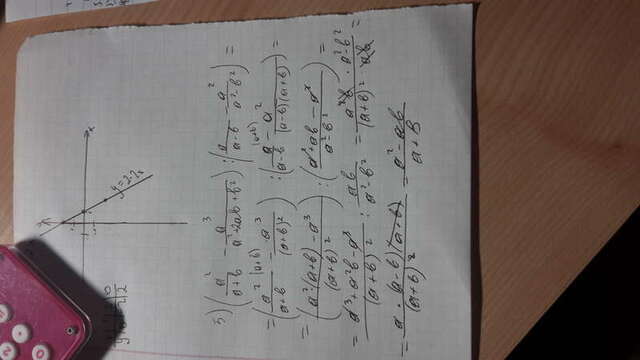 y
x
y=2-2x
5) (a²/(a+b) - a³/(a²+2ab+b²)) : (a/(a-b) - a²/(a²-b²)) =
= (a² (a+b)/(a+b) - a³/(a+b)²) : (a (a+b)/(a-b) - a²/((a-b)(a+b))) =
= ((a²(a+b) - a³)/(a+b)²) : ((a²+ab-a²)/(a²-b²)) =
= (a³+a²b-a³)/(a+b)² : ab/(a²-b²) = (a²b · a²-b²)/((a+b)² · ab) =
= (a · (a-b)(a+b))/(a+b)² = (a²-ab)/(a+b)